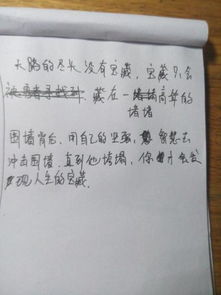 大路的尽头没有宝藏，宝藏只会
藏在一堵堵高耸的
围墙背后，用自己的坚强，智慧去
冲击围墙，直到他堵塌，你才会发
现人生的宝藏